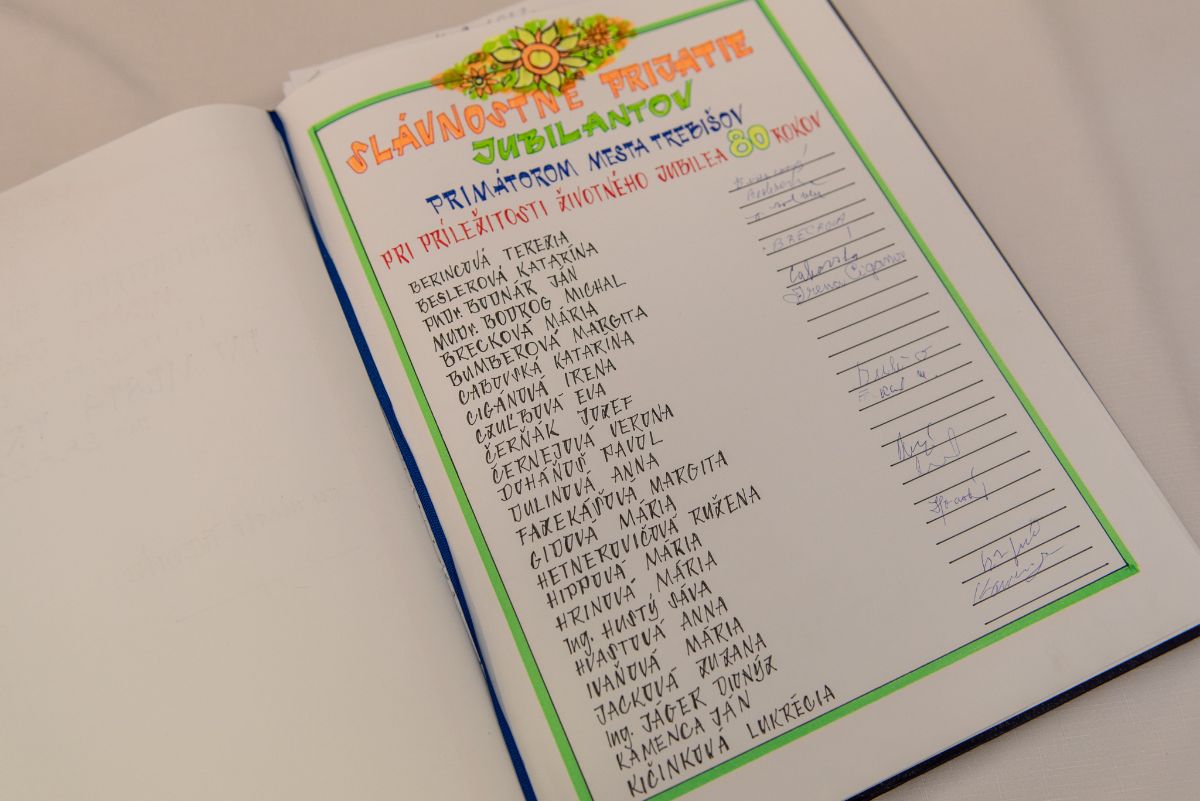 SLÁVNOSTNÉ PRIJATIE
JUBILANTOV
PRIMÁTOROM MESTA TREBIŠOV
PRI PRÍLEŽITOSTI ŽIVOTNÉHO JUBILEA 80 ROKOV
BERINCOVÁ TEREZIA
BESLEROVÁ KATARÍNA
PhDr. BODNÁR JÁN
MUDr. BODROG MICHAL
BRECKOVÁ MÁRIA
BUMBEROVÁ MARGITA
CABOVSKÁ KATARÍNA
CIGÁNOVÁ IRENA
CZUĽBOVÁ EVA
ČERŇÁK JOZEF
ČERNEJOVÁ VERONA
DOHÁŇOŠ PAVOL
DULINOVÁ ANNA
FAZEKAŠOVÁ MARGITA
GIDOVÁ MÁRIA
HETNEROVIČOVÁ RUŽENA
HIPPOVÁ MÁRIA
HRINOVÁ MÁRIA
Ing. HUSTÝ SÁVA
HVASTOVÁ ANNA
IVAŇOVÁ MÁRIA
JACKOVÁ ZUZANA
Ing. JÁGER DIONÝZ
KAMENCA JÁN
KIČINKOVÁ LUKRÉCIA
Cabovská
Irena Cigánov